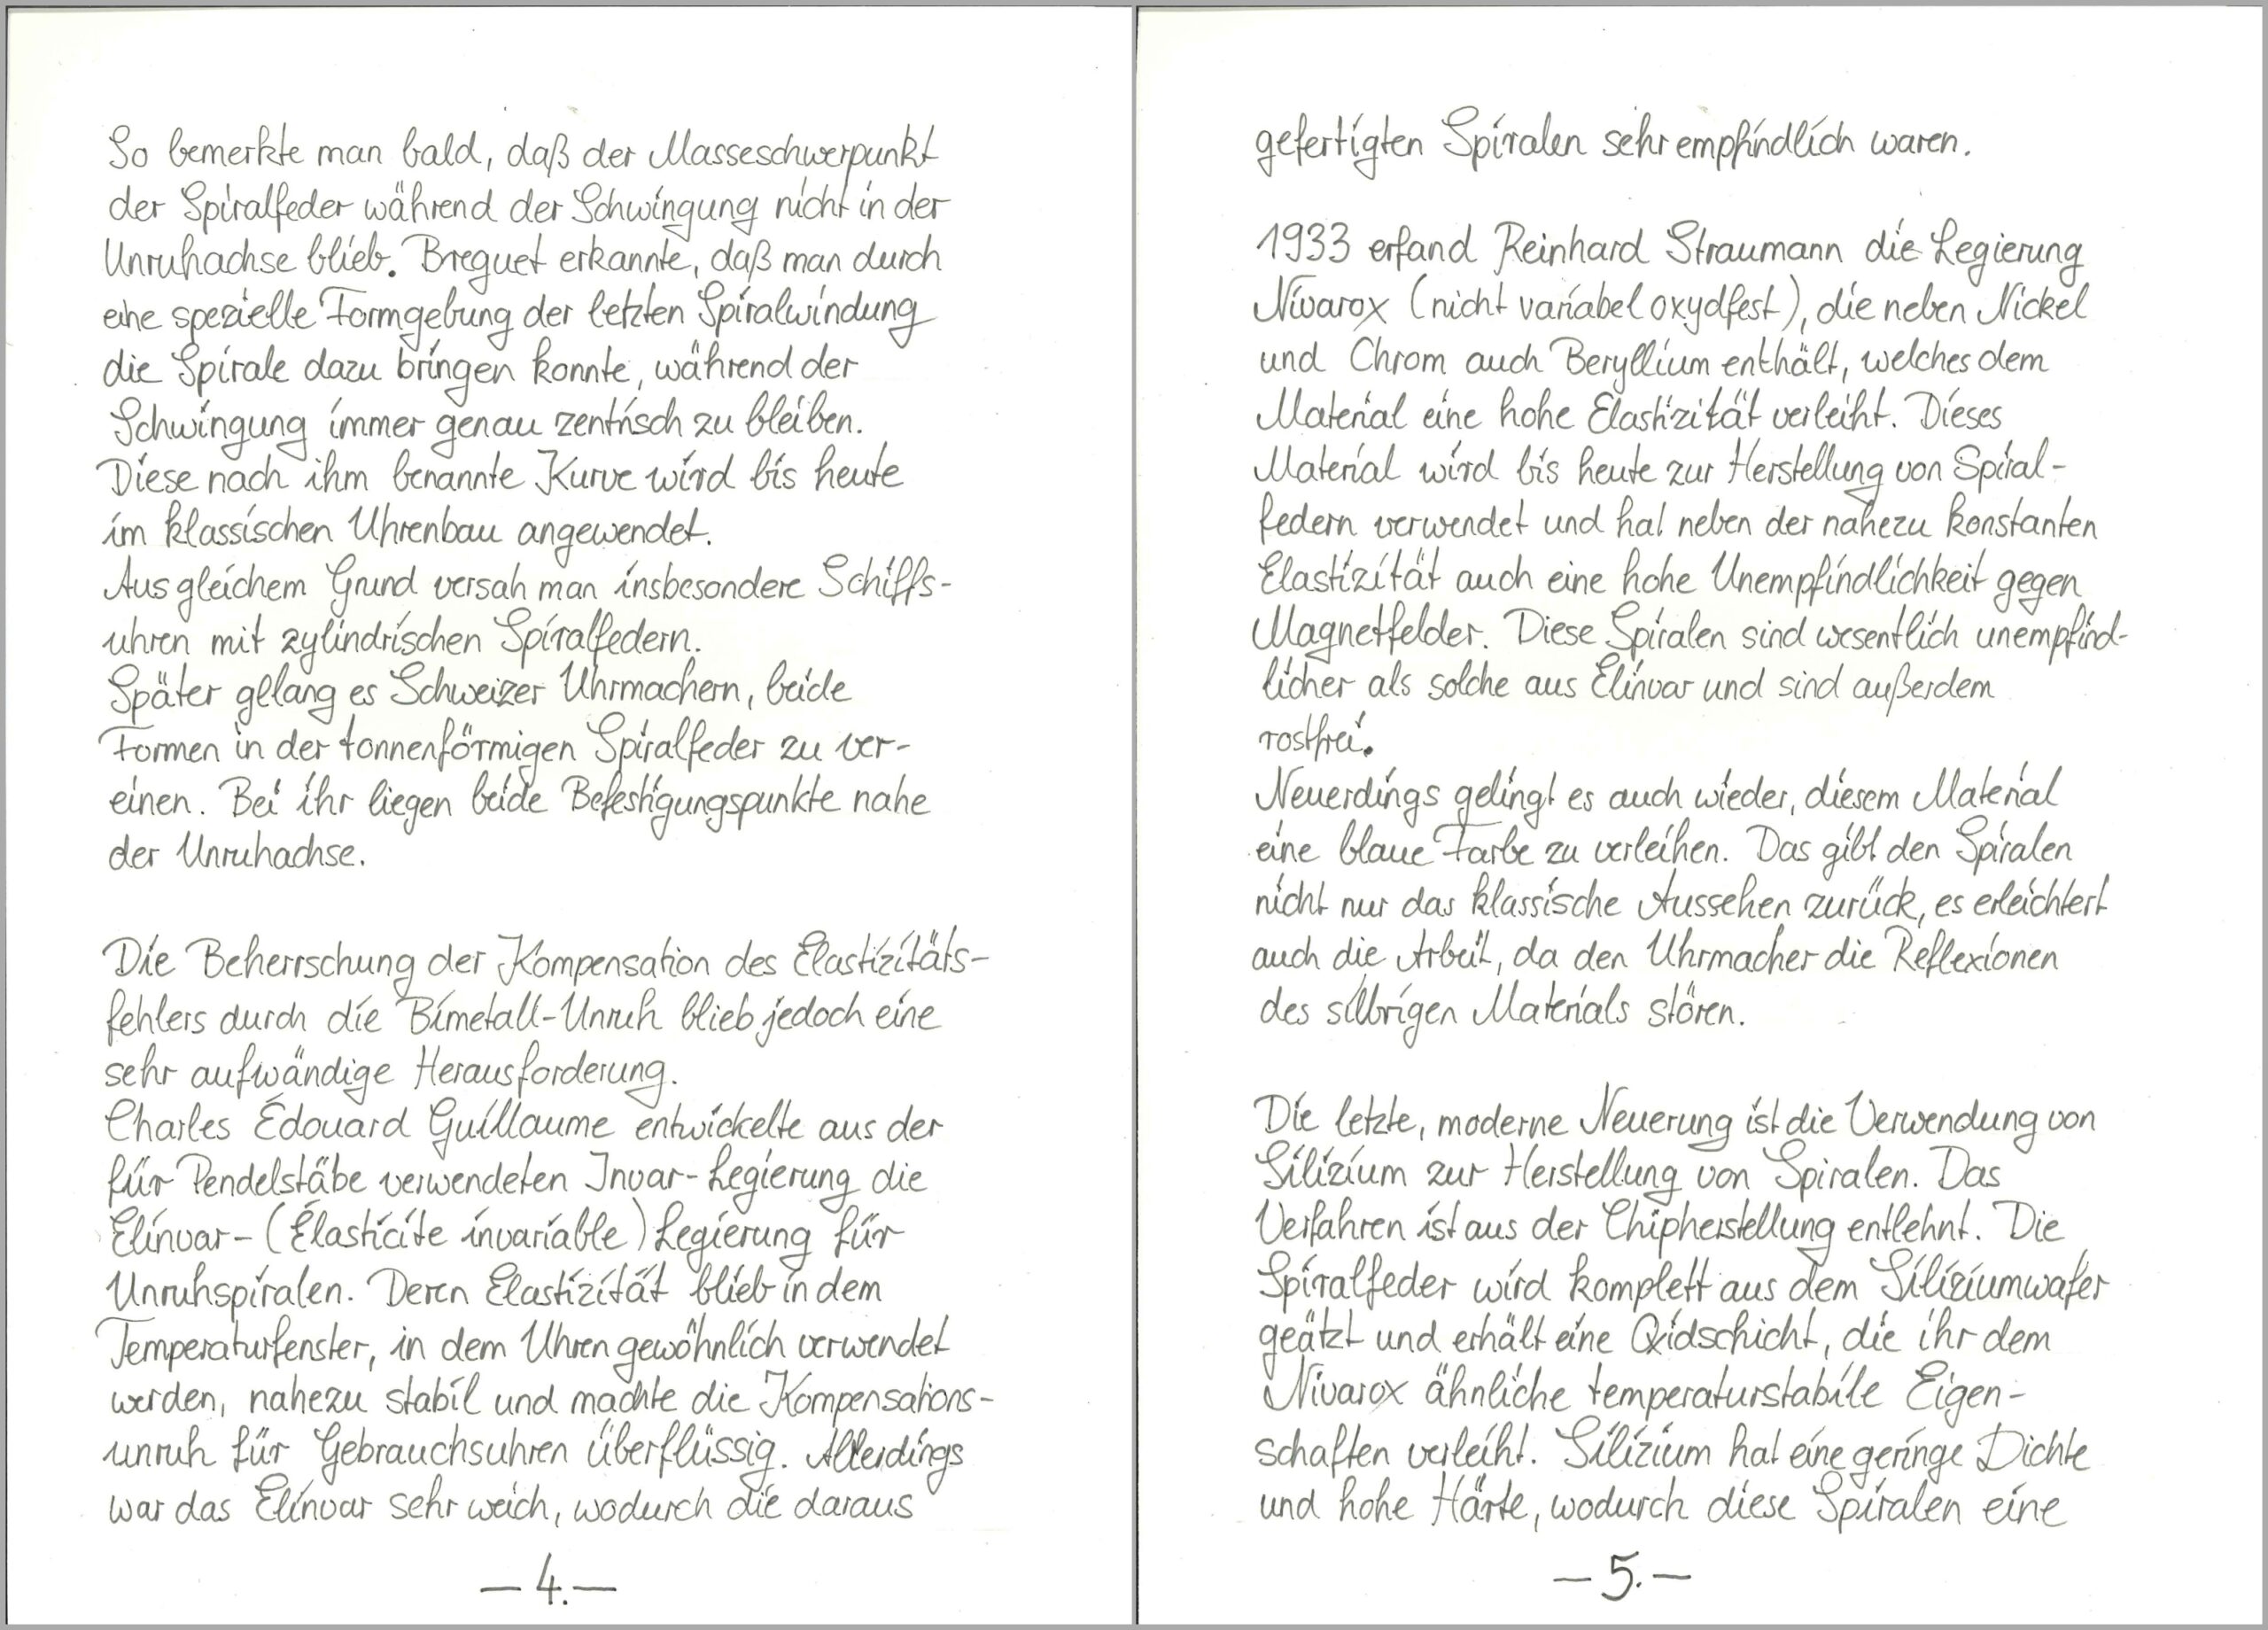 So bemerkte man bald, daß der Masseschwerpunkt
der Spiralfeder während der Schwingung nicht in der
Unruhachse blieb. Breguet erkannte, daß man durch
eine spezielle Formgebung der letzten Spiralwindung
die Spirale dazu bringen konnte, während der
Schwingung immer genau zentrisch zu bleiben.
Diese nach ihm benannte Kurve wird bis heute
im klassischen Uhrenbau angewendet.
Aus gleichem Grund versah man insbesondere Schiffs-
uhren mit zylindrischen Spiralfedern.
Später gelang es Schweizer Uhrmachern, beide
Formen in der tonnenförmigen Spiralfeder zu ver-
einen. Bei ihr liegen beide Befestigungspunkte nahe
der Unruhachse.
Die Beherrschung der Kompensation des Elastizitäts-
fehlers durch die Bimetall-Unruh blieb jedoch eine
sehr aufwändige Herausforderung.
Charles Édouard Guillaume entwickelte aus der
für Pendelstäbe verwendeten Invar-Legierung die
Elinvar-(Élasticite invariable) Legierung für
Unruhspiralen. Deren Elastizität blieb in dem
Temperaturfenster, in dem Uhren gewöhnlich verwendet
werden, nahezu stabil und machte die Kompensations-
unruh für Gebrauchsuhren überflüssig. Allerdings
war das Elinvar sehr weich, wodurch die daraus
— 4. —
gefertigten Spiralen sehr empfindlich waren.
1933 erfand Reinhard Straumann die Legierung
Nivarox (nicht variabel oxydfest), die neben Nickel
und Chrom auch Beryllium enthält, welches dem
Material eine hohe Elastizität verleiht. Dieses
Material wird bis heute zur Herstellung von Spiral-
federn verwendet und hat neben der nahezu konstanten
Elastizität auch eine hohe Unempfindlichkeit gegen
Magnetfelder. Diese Spiralen sind wesentlich unempfind-
licher als solche aus Elinvar und sind außerdem
rostfrei.
Neuerdings gelingt es auch wieder, diesem Material
eine blaue Farbe zu verleihen. Das gibt den Spiralen
nicht nur das klassische Aussehen zurück, es erleichtert
auch die Arbeit, da den Uhrmacher die Reflexionen
des silbrigen Materials stören.
Die letzte, moderne Neuerung ist die Verwendung von
Silizium zur Herstellung von Spiralen. Das
Verfahren ist aus der Chipherstellung entlehnt. Die
Spiralfeder wird komplett aus dem Siliziumwafer
geätzt und erhält eine Oxidschicht, die ihr dem
Nivarox ähnliche temperaturstabile Eigen-
schaften verleiht. Silizium hat eine geringe Dichte
und hohe Härte, wodurch diese Spiralen eine
— 5. —